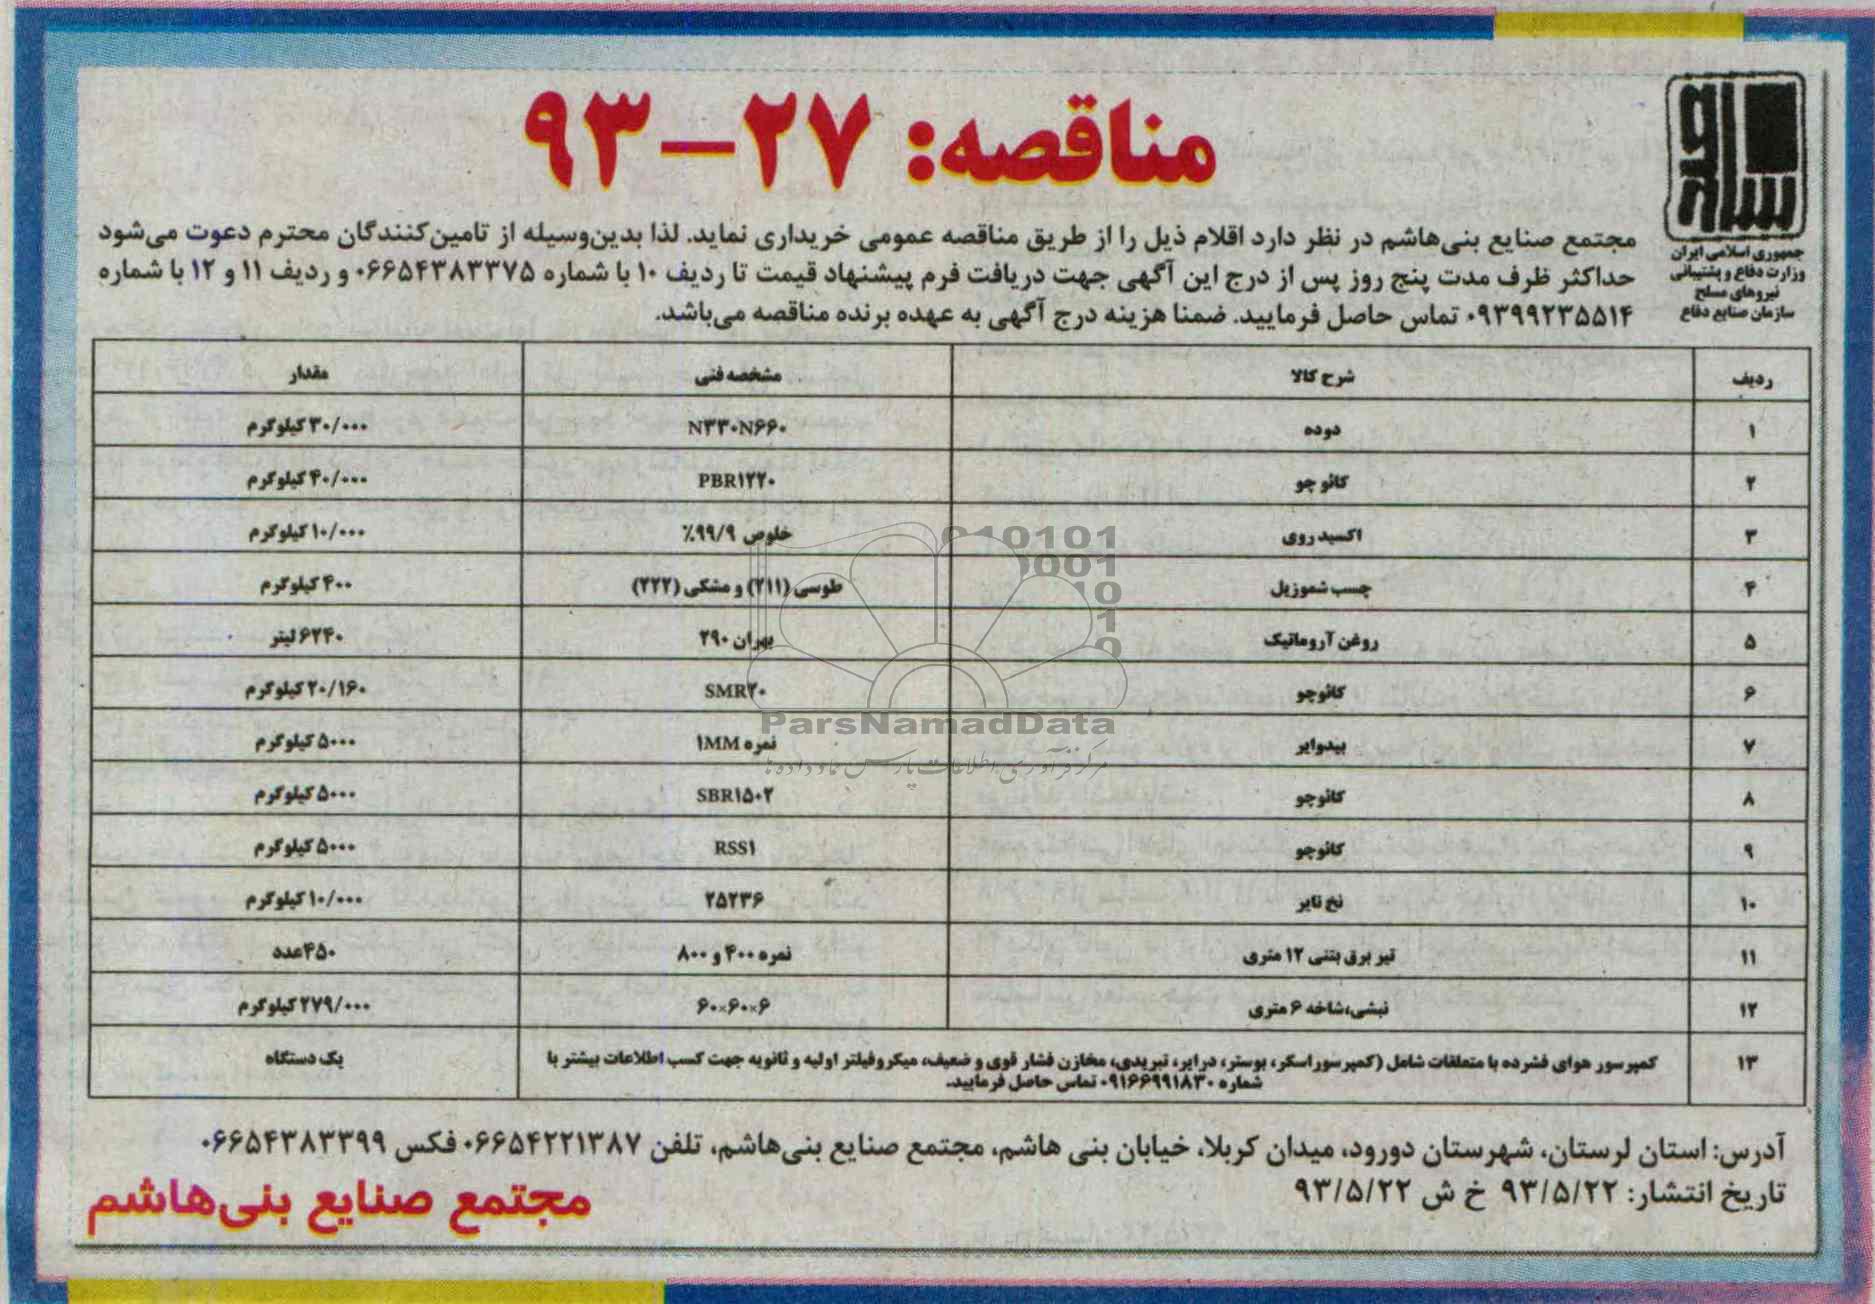 مناقصه: ۲۷-۹۳
ساصد
جمهوری اسلامی ایران
وزارت دفاع و پشتیبانی
نیروهای مسلح
سازمان صنایع دفاع
مجتمع صنایع بنی‌هاشم در نظر دارد اقلام ذیل را از طریق مناقصه عمومی خریداری نماید. لذا بدین‌وسیله از تامین‌کنندگان محترم دعوت می‌شود
حداکثر ظرف مدت پنج روز پس از درج این آگهی جهت دریافت فرم پیشنهاد قیمت تا ردیف ۱۰ با شماره ۰۶۶۵۴۳۸۳۳۷۵ و ردیف ۱۱ و ۱۲ با شماره
۰۹۳۹۹۲۳۵۵۱۴ تماس حاصل فرمایید. ضمنا هزینه درج آگهی به عهده برنده مناقصه می‌باشد.
ردیف شرح کالا مشخصه فنی مقدار
۱ دوده N۳۳۰N۶۶۰ ۳۰/۰۰۰ کیلوگرم
۲ کائوچو PBR۱۲۲۰ ۴۰/۰۰۰ کیلوگرم
۳ اکسید روی خلوص ۹۹/۹٪ ۱۰/۰۰۰ کیلوگرم
۴ چسب شموزیل طوسی (۲۱۱) و مشکی (۲۲۲) ۴۰۰ کیلوگرم
۵ روغن آروماتیک بهران ۲۹۰ ۶۲۴۰ لیتر
۶ کائوچو SMR۲۰ ۲۰/۱۶۰ کیلوگرم
۷ بیدوایر نمره ۱MM ۵۰۰۰ کیلوگرم
۸ کائوچو SBR۱۵۰۲ ۵۰۰۰ کیلوگرم
۹ کائوچو RSS۱ ۵۰۰۰ کیلوگرم
۱۰ نخ تایر ۲۵۲۳۶ ۱۰/۰۰۰ کیلوگرم
۱۱ تیر برق بتنی ۱۲ متری نمره ۴۰۰ و ۸۰۰ ۴۵۰ عدد
۱۲ نبشی،شاخه ۶ متری ۶۰×۶۰×۶ ۲۷۹/۰۰۰ کیلوگرم
۱۳ کمپرسور هوای فشرده با متعلقات شامل (کمپرسور اسکر، بوستر، درایر، تبریدی، مخازن فشار قوی و ضعیف، میکروفیلتر اولیه و ثانویه جهت کسب اطلاعات بیشتر با یک دستگاه
شماره ۰۹۱۶۶۹۹۱۸۳۰ تماس حاصل فرمایید.
ParsNamadData
مرکز فرآوری اطلاعات پارس نماد داده ها
آدرس: استان لرستان، شهرستان دورود، میدان کربلا، خیابان بنی هاشم، مجتمع صنایع بنی‌هاشم، تلفن ۰۶۶۵۴۲۲۱۳۸۷ فکس ۰۶۶۵۴۳۸۳۳۹۹
تاریخ انتشار: ۹۳/۵/۲۲ خ ش ۹۳/۵/۲۲
مجتمع صنایع بنی‌هاشم